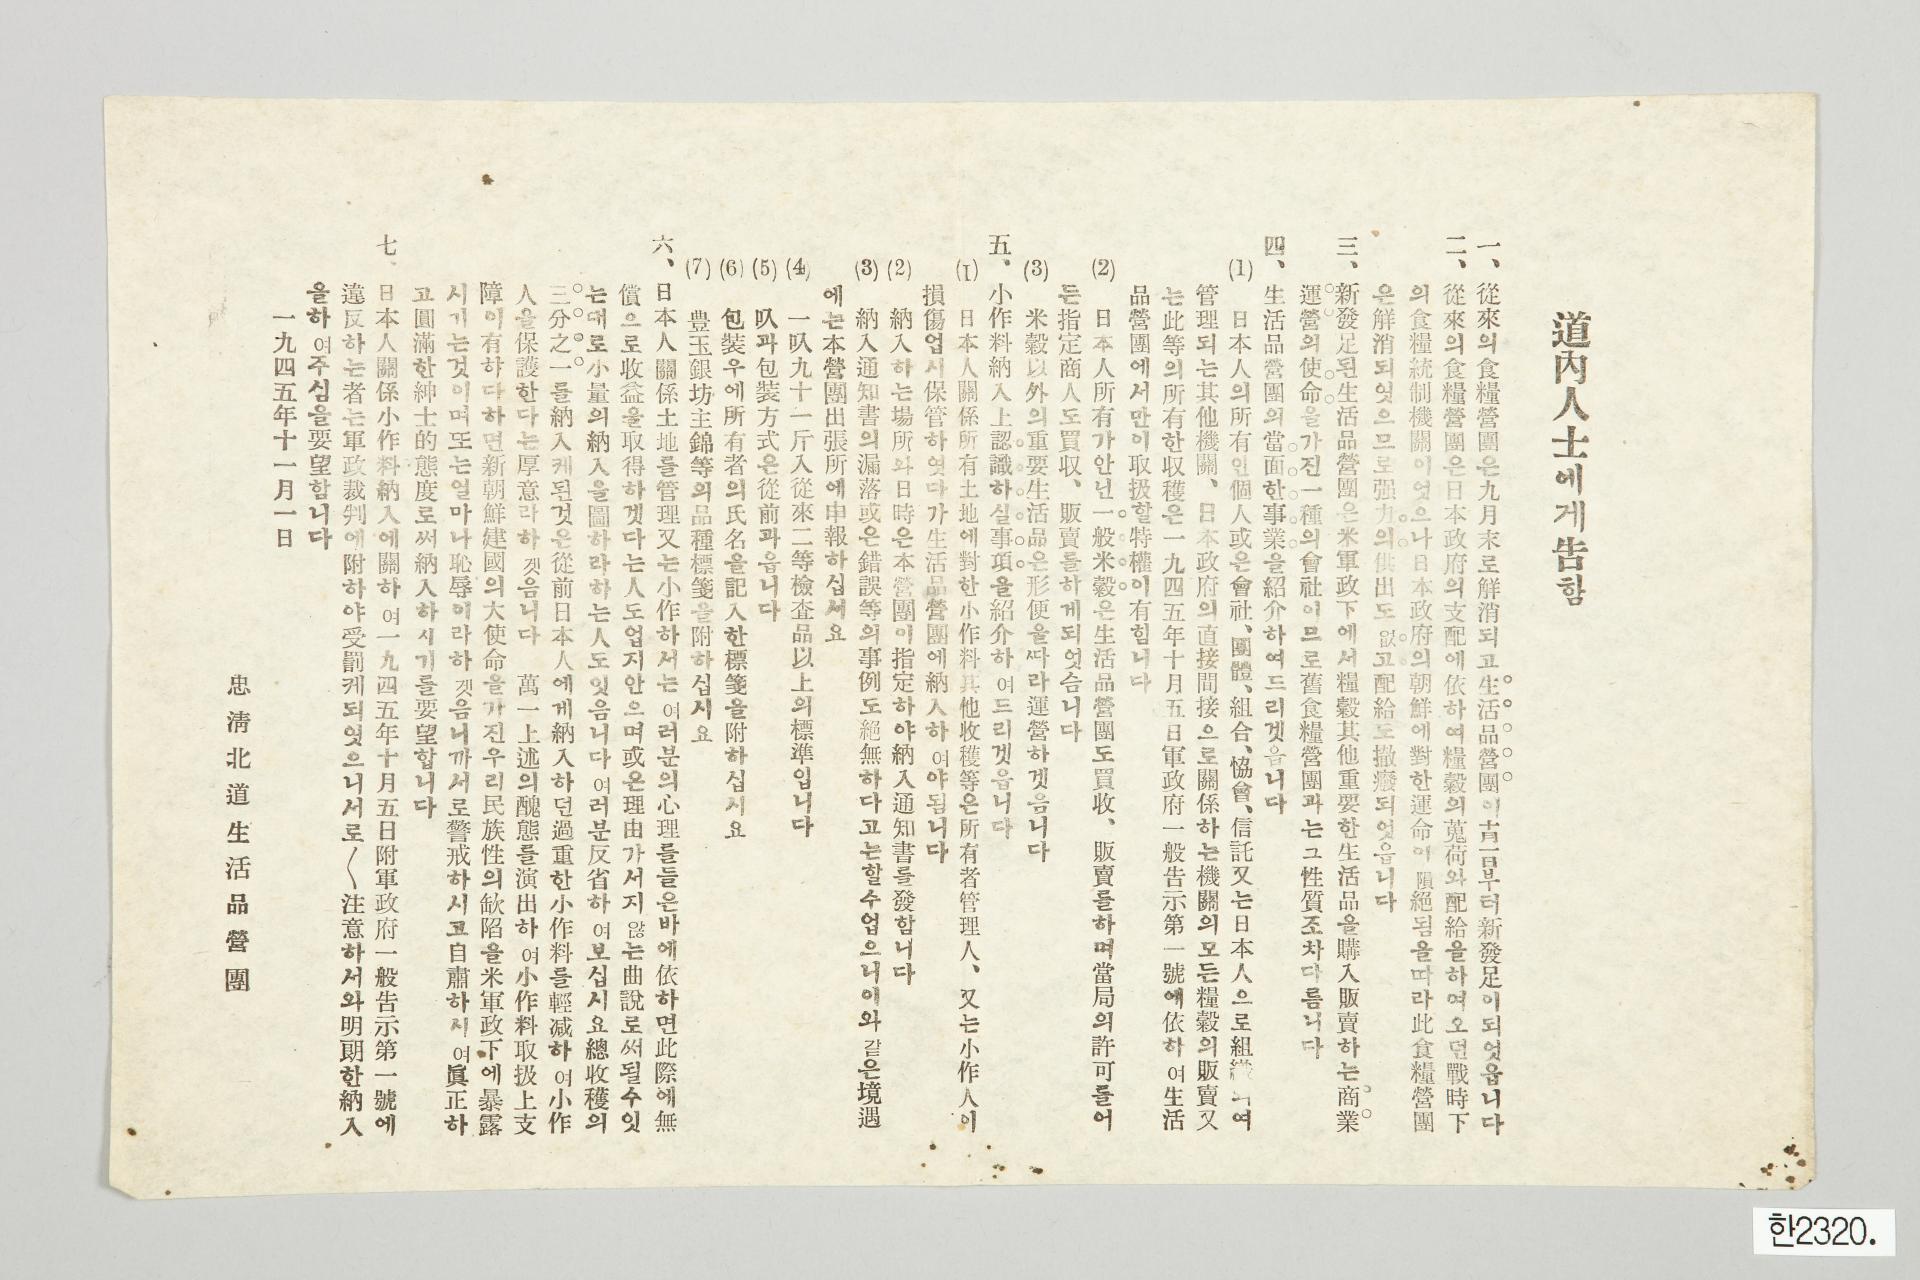 道內人士에게告함
一、從來의食糧營團은九月末로解消되고生活品營團이十月一日부터新發足이되엇읍니다
二、從來의食糧營團은日本政府의支配에依하여糧穀의蒐荷와配給을하여오던戰時下
의食糧統制機關이엇으나日本政府의朝鮮에對한運命이隕絕됨을따라此食糧營團
은解消되엿으므로强力의供出도없고配給도撤廢되엇읍니다
三、新發足된生活品營團은米軍政下에서糧穀其他重要한生活品을購入販賣하는商業
運營의使命을가진一種의會社이므로舊食糧營團과는그性質조차다름니다
四、生活品營團의當面한事業을紹介하여드리겟읍니다
(1) 日本人의所有인個人或은會社、團體、組合、協會、信託又는日本人으로組織되여
管理되는其他機關、日本政府의直接間接으로關係하는機關의모든糧穀의販賣又
는此等의所有한収穫은一九四五年十月五日軍政府一般告示第一號에依하여生活
品營團에서만이取扱할特權이有힘니다
(2) 日本人所有가안닌一般米穀은生活品營團도買收、販賣를하며當局의許可를어
든指定商人도買収、販賣를하게되엇슴니다
(3) 米穀以外의重要生活品은形便을싸라運營하겟음니다
五、小作料納入上認識하실事項을紹介하여드리겟읍니다
(1) 日本人關係所有土地에對한小作料其他收穫等은所有者管理人、又는小作人이
損傷업시保管하엿다가生活品營團에納入하여야됨니다
(2) 納入하는場所와日時은本營團이指定하야納入通知書를發함니다
(3) 納入通知書의漏落或은錯誤等의事例도絕無하다고는할수업으니이와같은境遇
에는本營團出張所에申報하십서요
(4) 一叺九十一斤入從來二等檢査品以上의標準입니다
(5) 叺과包裝方式은從前과읍니다
(6) 包裝우에所有者의氏名을記入한標箋을附하십시요
(7) 豊玉銀坊主錦等의品種標箋을附하십시요
六、日本人關係土地를管理又는小作하서는여러분의心理를들은바에依하면此際에無
償으로收益을取得하겟다는人도업지안으며或은理由가서지않는曲說로써될수잇
는대로小量의納入을圖하라하는人도잇음니다여러분反省하여보십시요總收穫의
三分之一를納入케된것은從前日本人에게納入하던過重한小作料를輕減하여小作
人을保護한다는厚意라하겟음니다 萬一上述의醜態를演出하여小作料取扱上支
障이有하다하면新朝鮮建國의大使命을가진우리民族性의缺陷을米軍政下에暴露
시기는것이며또는얼마나恥辱이라하겟음니까서로警戒하시고自肅하시여眞正하
고圓滿한紳士的態度로써納入하시기를要望합니다
七、日本人關係小作料納入에關하여一九四五年十月五日附軍政府一般告示第一號에
違反하는者는軍政裁判에附하야受罰케되엿으니서로〱注意하서와明朗한納入
을하여주심을要望함니다
一九四五年十一月一日
忠淸北道生活品營團
한2320.